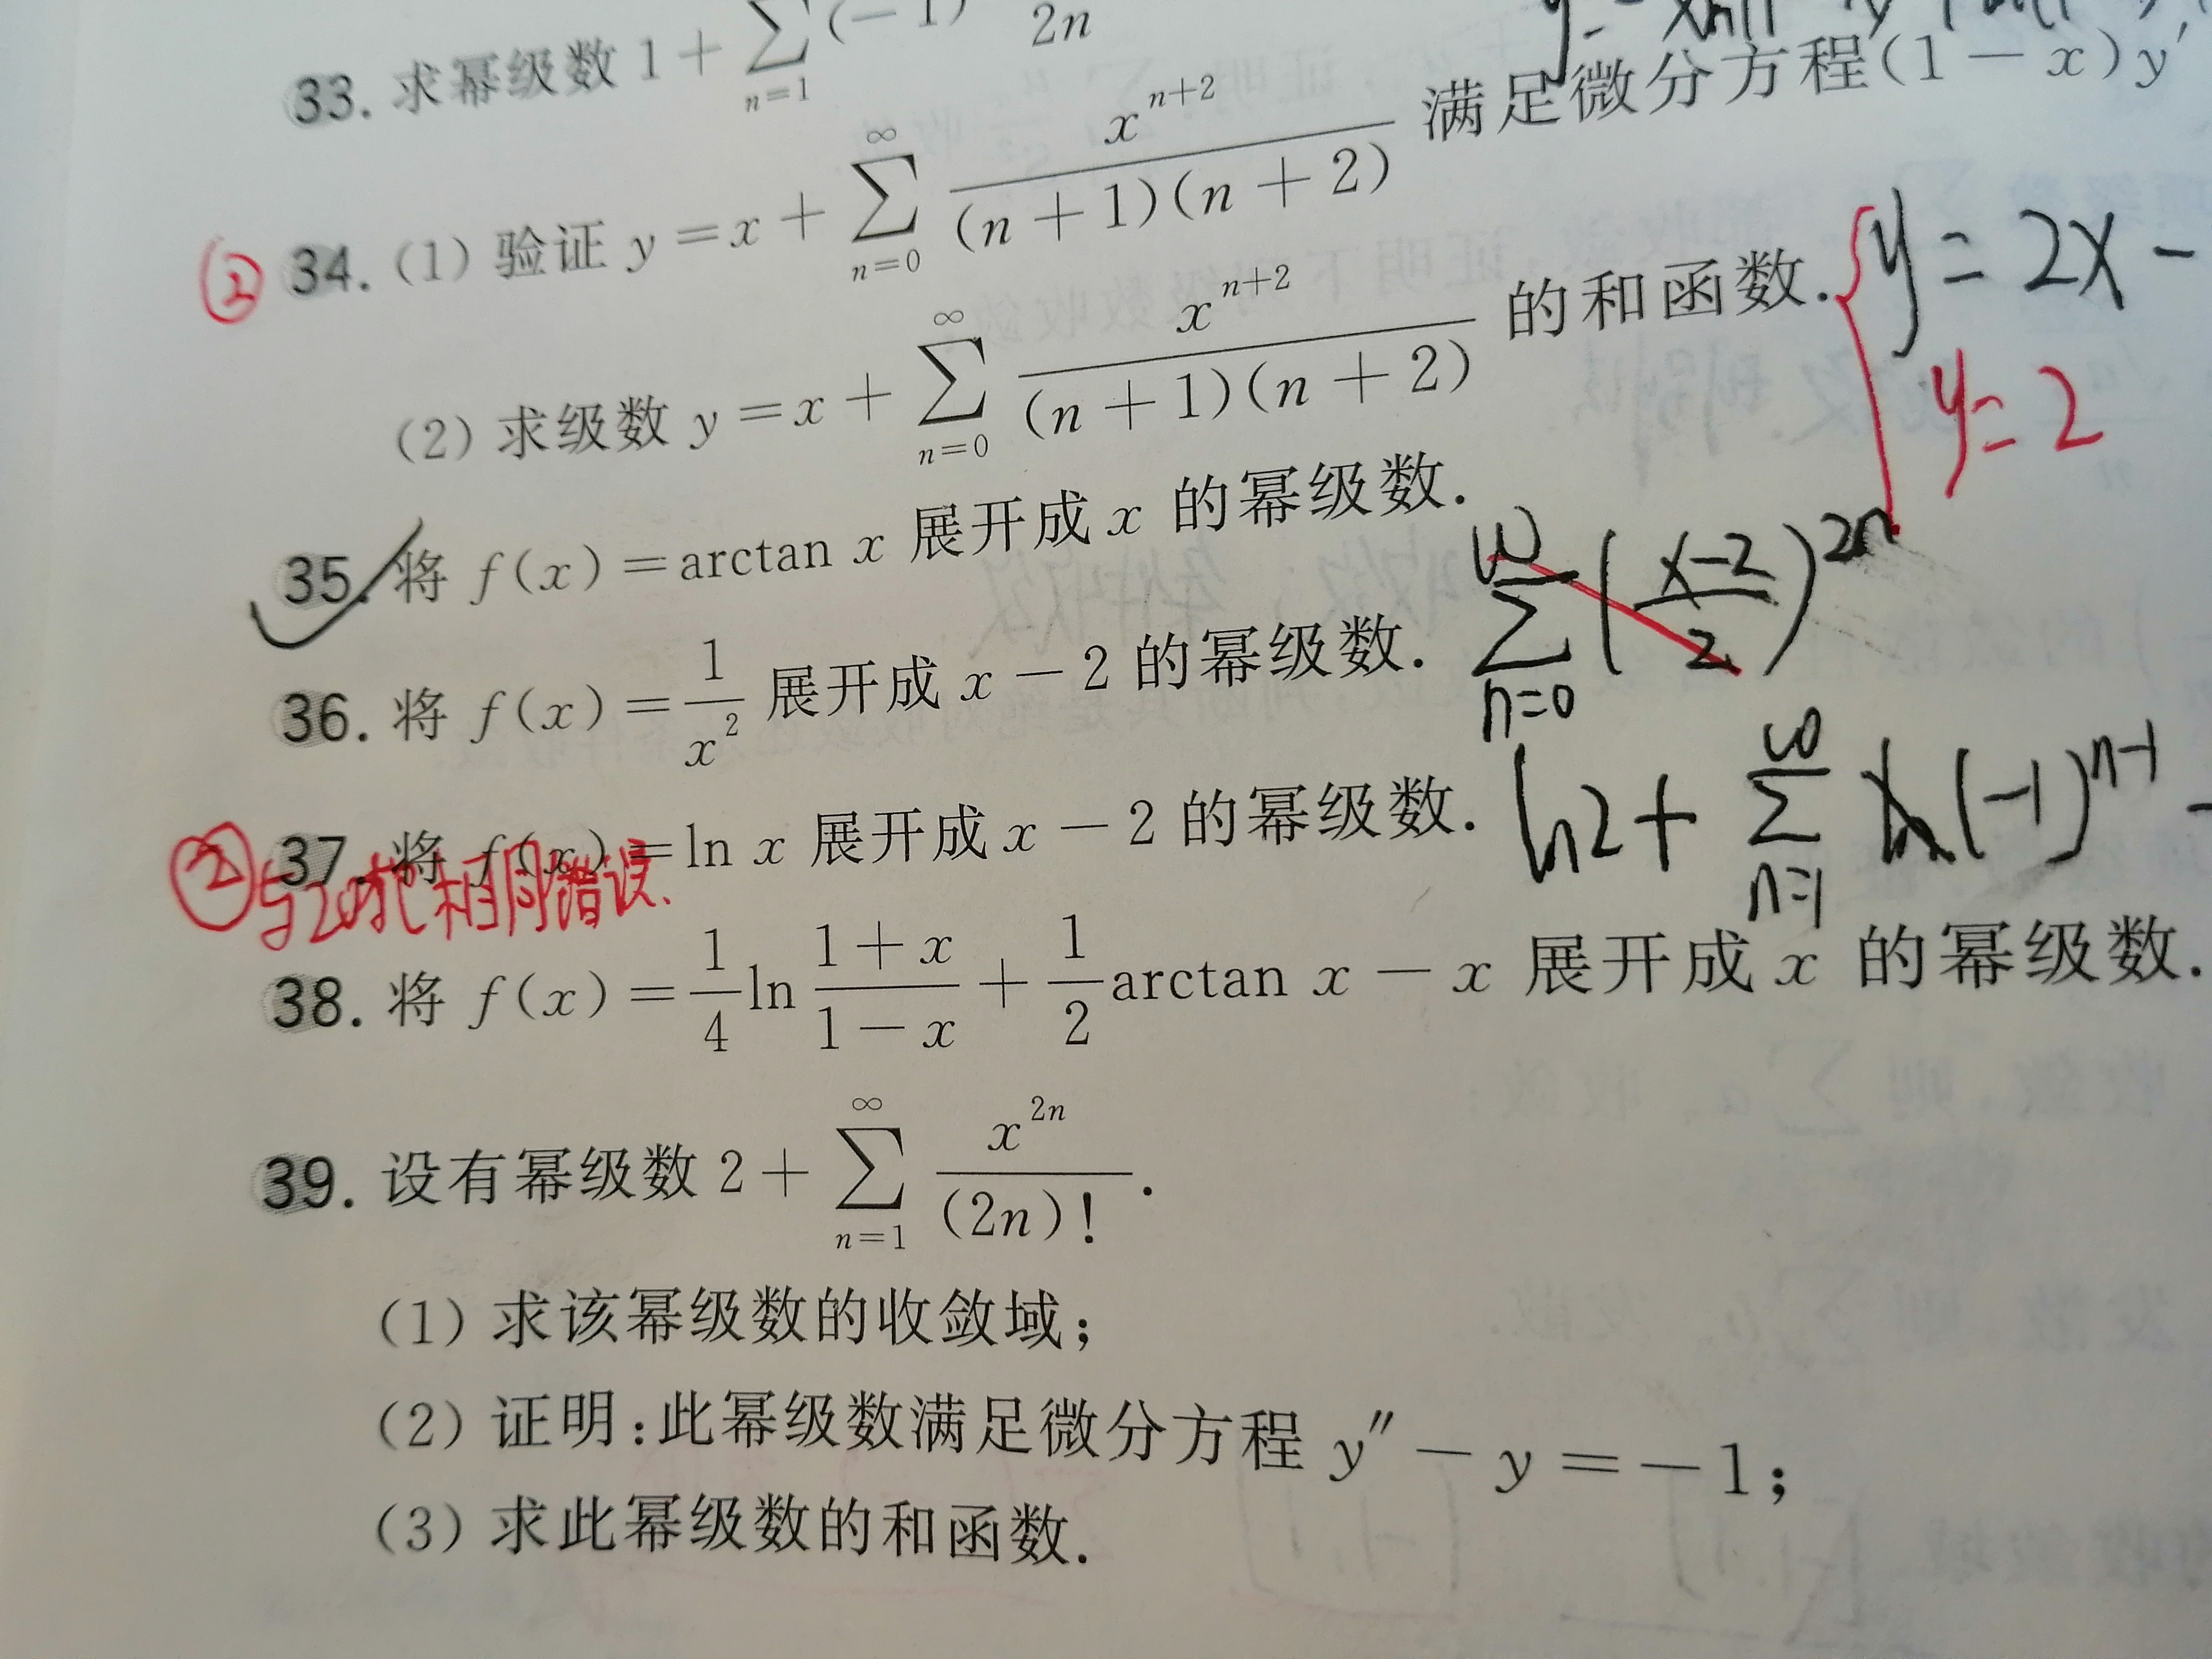 33. 求幂级数 1 + ∑_{n=1} (-1) 2n
34. (1) 验证 y = x + ∑_{n=0}^{∞} x^{n+2}/((n+1)(n+2)) 满足微分方程(1-x)y′
(2) 求级数 y = x + ∑_{n=0}^{∞} x^{n+2}/((n+1)(n+2)) 的和函数. y = 2x -
y = 2
35. 将 f(x) = arctan x 展开成 x 的幂级数.
36. 将 f(x) = 1/x^2 展开成 x - 2 的幂级数. ∑_{n=0}^{∞} ((x-2)/2)^{2n}
② 37. 将 f(x) = ln x 展开成 x - 2 的幂级数. ln2 + ∑_{n=1}^{∞} (-1)^{n-1}
相同错误.
38. 将 f(x) = 1/4 ln (1+x)/(1-x) + 1/2 arctan x - x 展开成 x 的幂级数.
39. 设有幂级数 2 + ∑_{n=1}^{∞} x^{2n}/(2n)! .
(1) 求该幂级数的收敛域;
(2) 证明:此幂级数满足微分方程 y″ - y = -1;
(3) 求此幂级数的和函数.